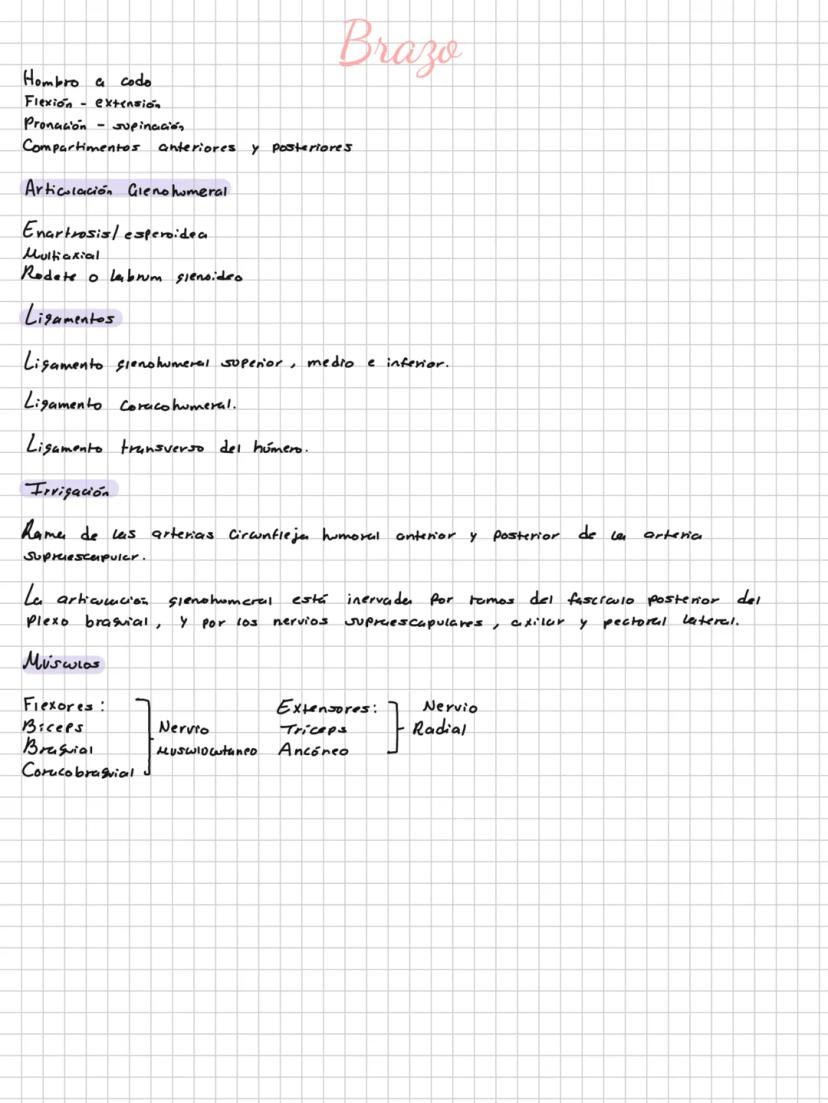 Brazo
Hombro a codo
Flexión - extensión
Pronación - supinación
Compartimentos anteriores y posteriores
Articulación Glenohumeral
Enartrosis/esferoidea
Multiaxial
Rodete o labrum glenoideo
Ligamentos
Ligamento glenohumeral superior, medio e inferior.
Ligamento coracohumeral.
Ligamento transverso del húmero.
Irrigación
Rama de las arterias circunfleja humoral anterior y posterior de la arteria
supraescapular.
La articulación glenohumeral está inervada por ramos del fascículo posterior del
plexo braquial, y por los nervios supraescapulares, axilar y pectoral lateral.
Músculos
Flexores: Extensores: Nervio
Bíceps Nervio Tríceps Radial
Braquial Musculocutaneo Ancóneo
Coracobraquial